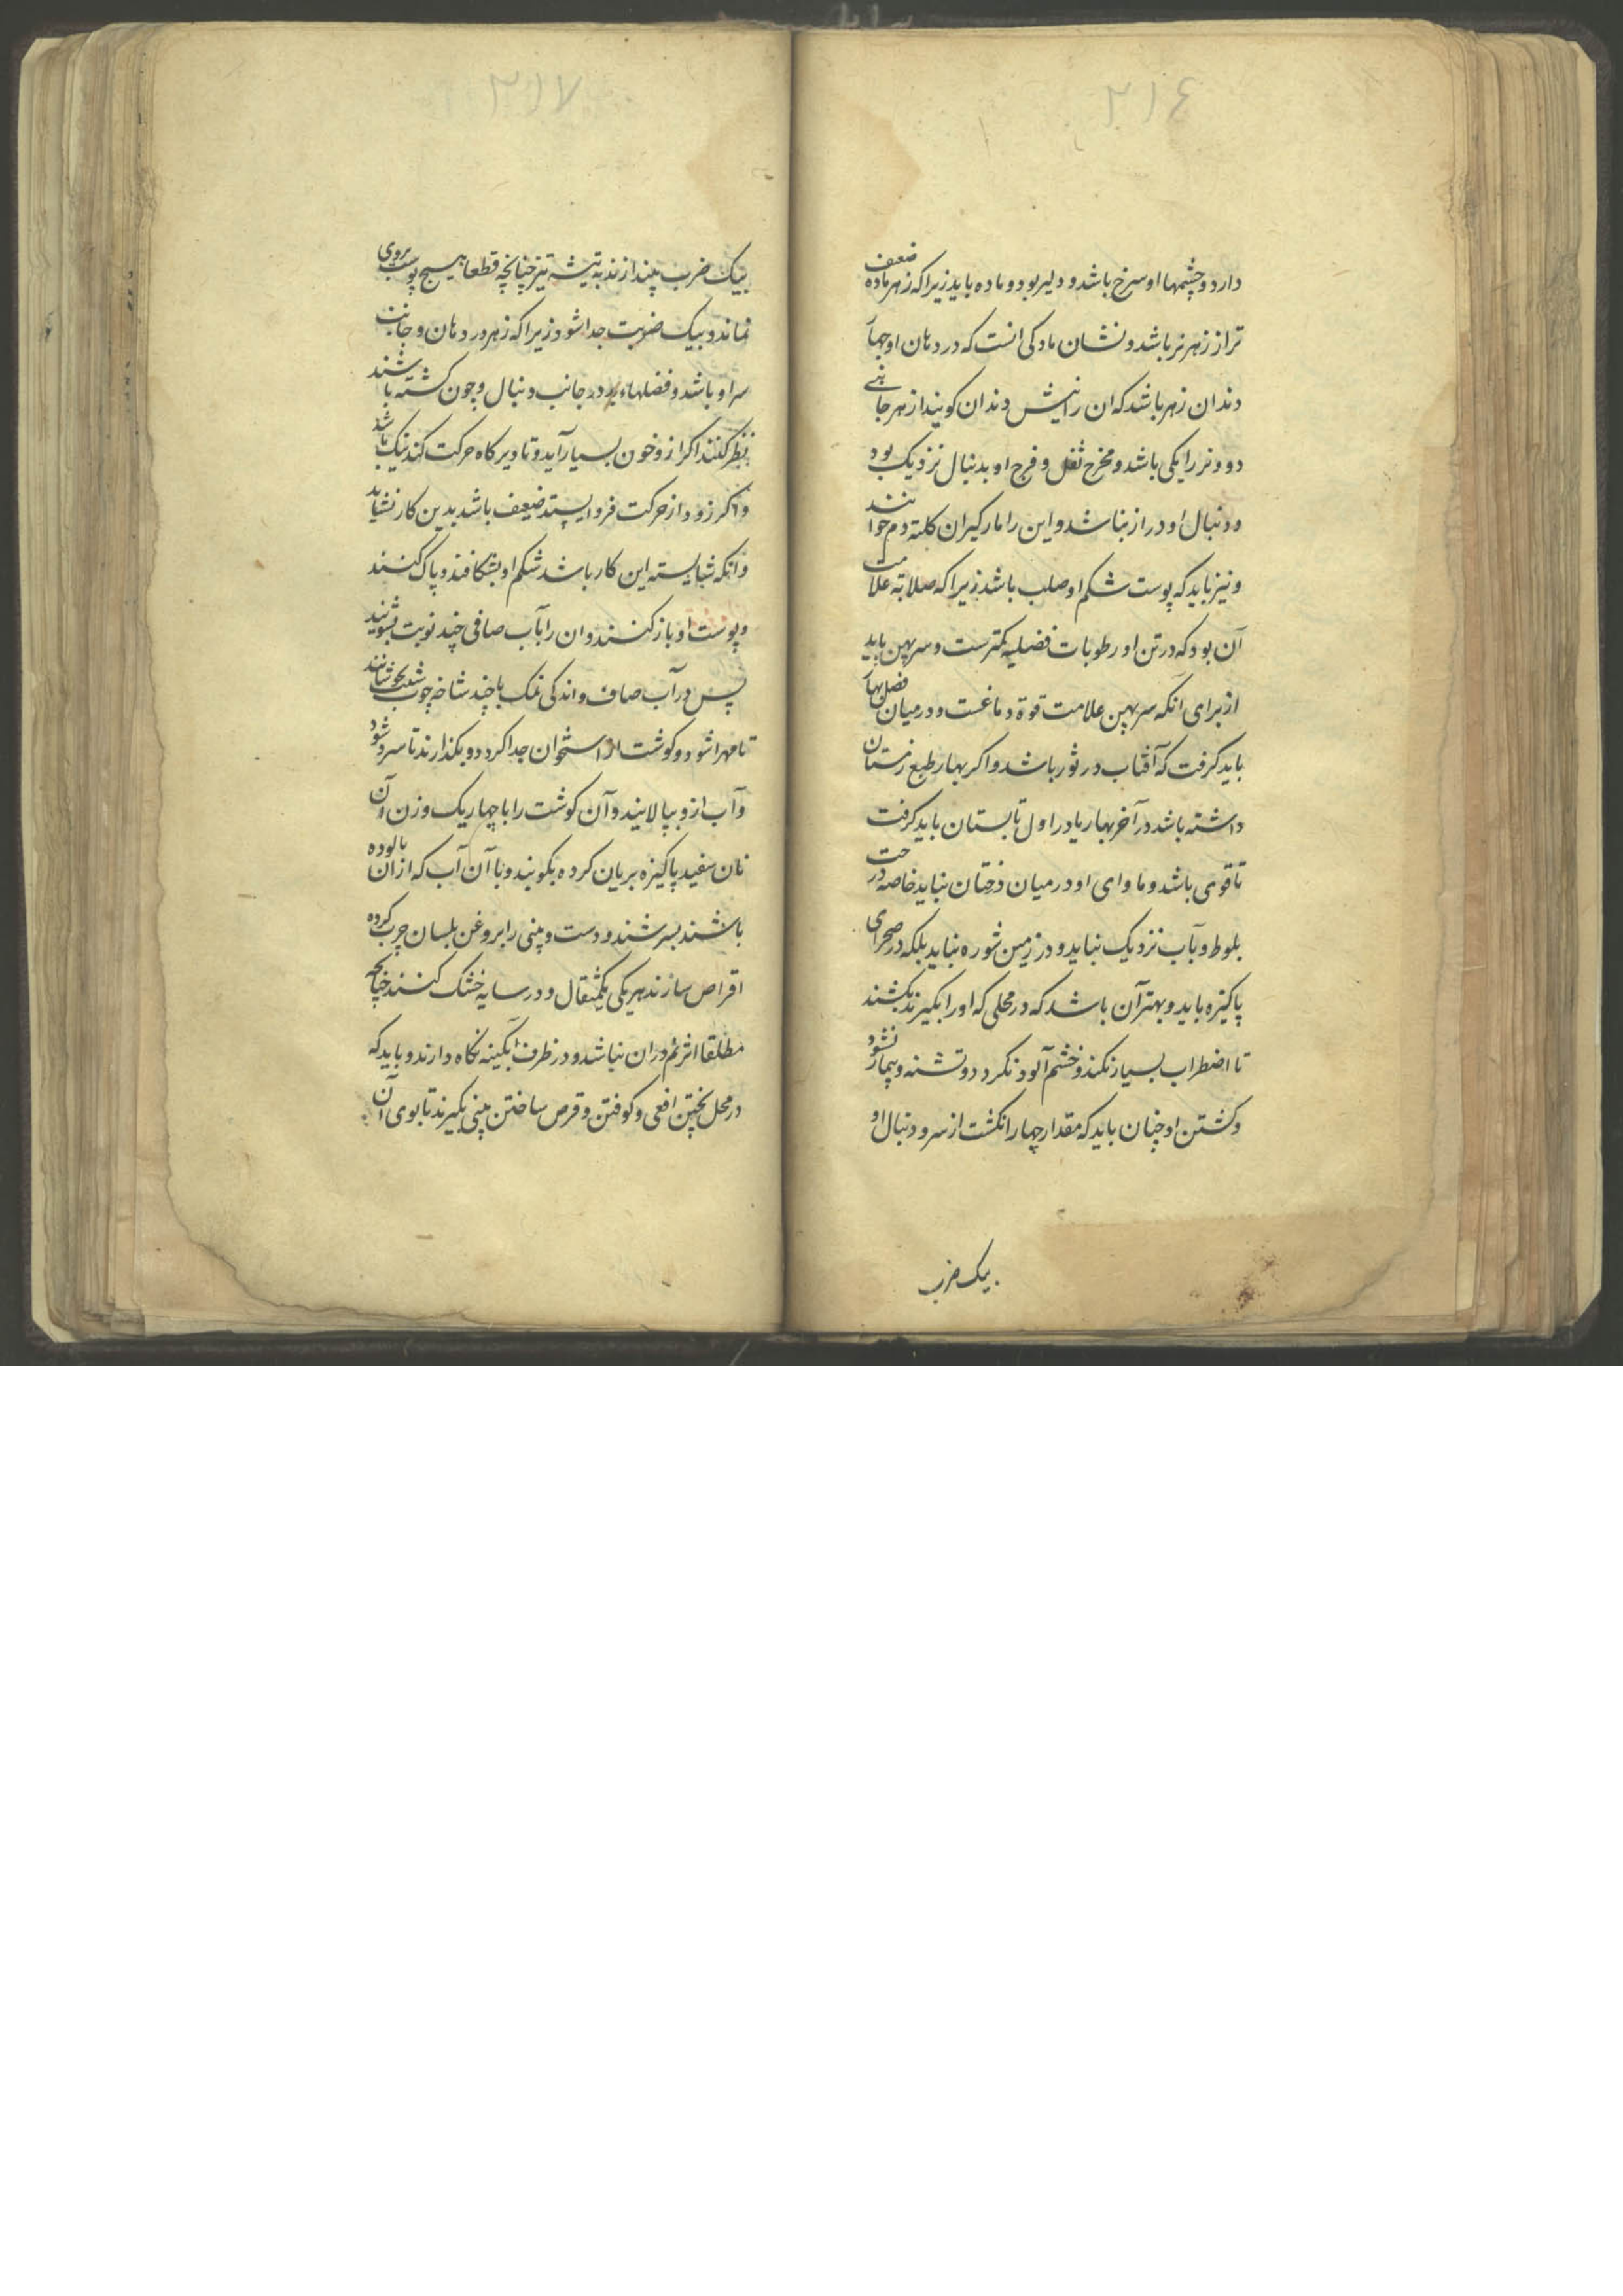 ۲۱٤
دارد و چشمها او سرخ باشد و دلیر بود و ماده باید زیرا که زهر ماده ضعف
تر از زهر نر باشد و نشان مادکی انست که در دهان او چها
دندان زهر باشد که ان را نیش دندان کویند از هر جانبی
دو و نر را یکی باشد و مخرج ثفل و فرج او بدنبال نزدیک بود
و دنبال او دراز نباشد و این را مار کیران کلته دم خوانند
و نیز باید که پوست شکم او صلب باشد زیرا که صلابة علامت
آن بود که در تن او رطوبات فضلیه کمترست و سر پهن باید
از برای انکه سر پهن علامت قوة دماغست و در میان فصل بهار
باید کرفت که آفتاب در ثور باشد و اکر بهار طبع زمستان
داشته باشد در آخر بهار یا در اول تابستان باید کرفت
تا قوی باشد و ماوای او در میان درختان نباید خاصه درخت
بلوط و بآب نزدیک نباید و در زمین شوره نباید بلکه در صحرای
پاکیزه باید و بهتر آن باشد که در محلی که او را بکیرند بکشند
تا اضطراب بسیار نکند و خشم آلود نکردد و تشنه و بیمار نشود
و کشتن او چنان باید که مقدار چهار انکشت از سر و دنبال او
بیک ضرب
۲۱۷
بیک ضرب بیندازند به تیشه تیز چنانچه قطعا هیچ پوست بروی
نماند و بیک ضربت جدا شود زیرا که زهر در دهان و جانب
سر او باشد و فضلهاء در جانب دنبال و چون کشته باشند
نظر کنند اکر ازو خون بسیار آید و تا دیر کاه حرکت کند نیک باشد
و اکر زود از حرکت فرو ایستد ضعیف باشد بدین کار نشاید
و انکه شایسته این کار باشد شکم او بشکافند و پاک کنند
و پوست او باز کنند و ان را بآب صافی چند نوبت بشویند
پس در آب صاف و اندکی نمک با چند شاخه چوب شبت بجوشانند
تا مهرا شود و کوشت از استخوان جدا کردد و بکذارند تا سرد شود
و آب ازو بپالایند و آن کوشت را با چهار یک وزن آن
نان سفید پاکیزه بریان کرده بکوبند و با آن آب که از ان پالوده
باشند بسرشند و دست و بینی را بروغن بلسان چرب کرده
اقراص سازند هر یکی یکمثقال و در سایه خشک کنند چنانچه
مطلقا اثر نم در ان نباشد و در ظرف آبکینه نکاه دارند و باید که
در محل پختن افعی و کوفتن و قرص ساختن بینی بکیرند تا بوی آن